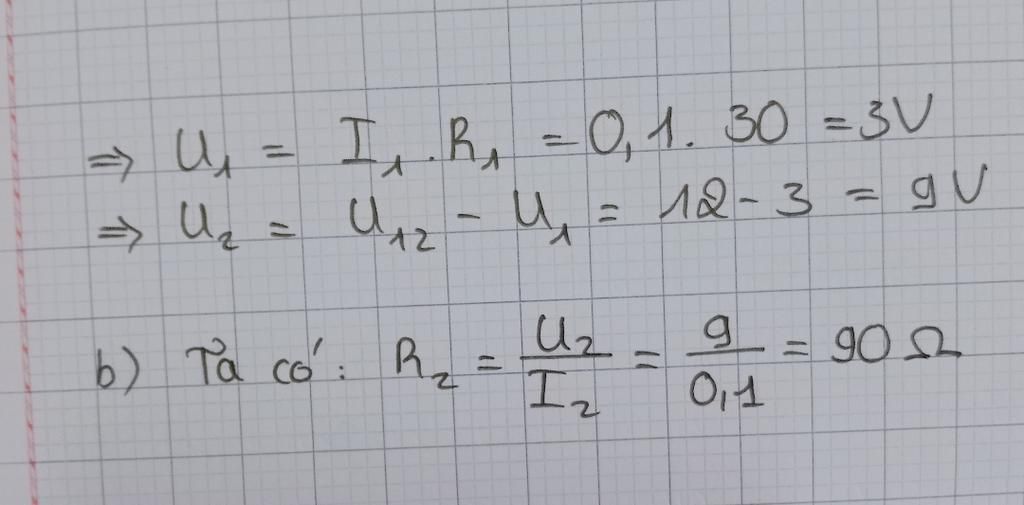 ⇒ U₁ = I₁ . R₁ = 0,1 . 30 = 3V
⇒ U₂ = U₁₂ - U₁ = 12 - 3 = 9V
b) Ta có: R₂ = U₂/I₂ = 9/0,1 = 90 Ω